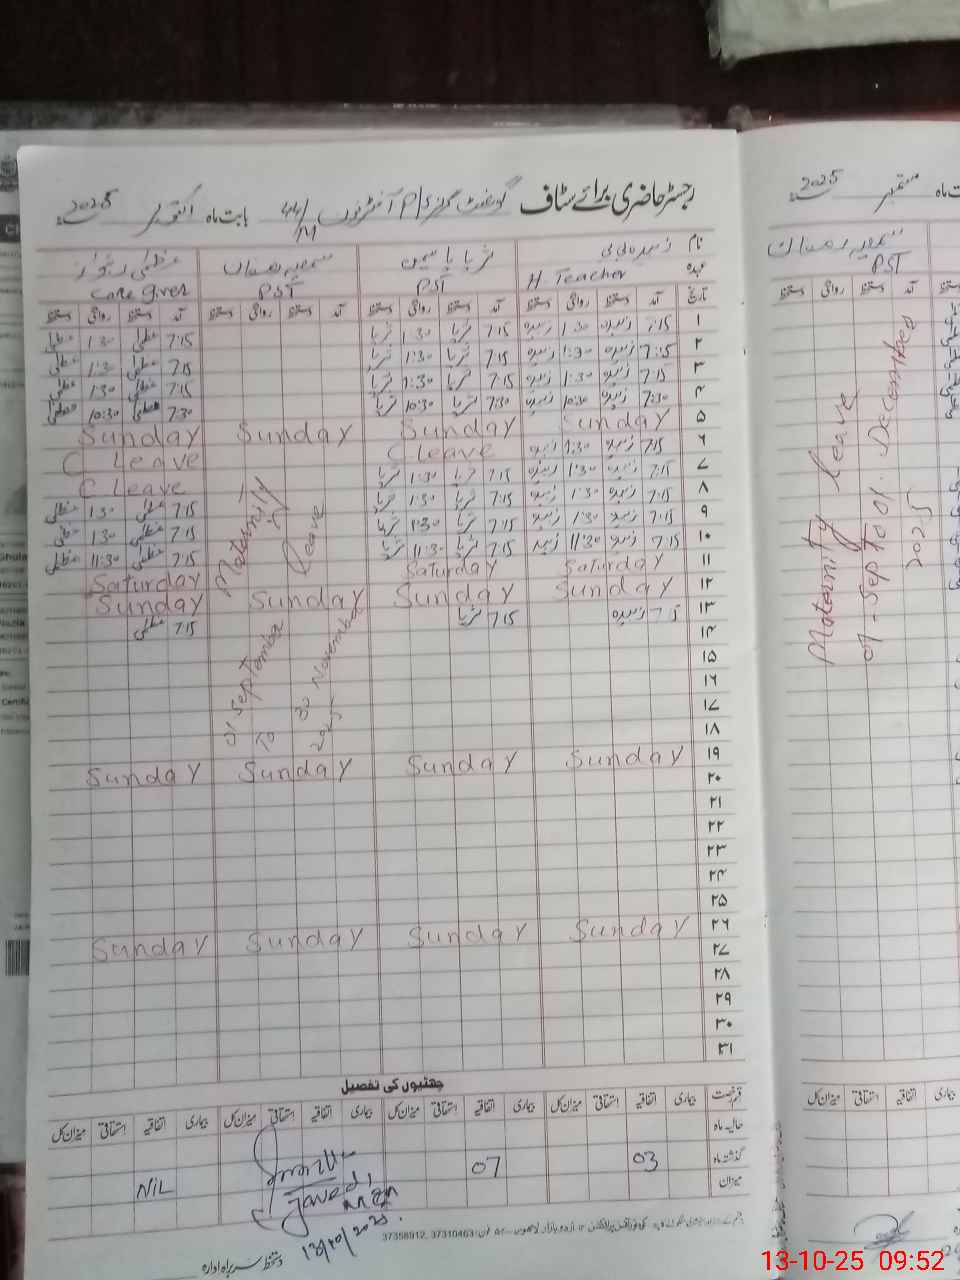 رجسٹر حاضری برائے سٹاف گورنمنٹ گرلز P/ آفٹرنون 44/M بابت ماہ اکتوبر 2025
نام زبیدہ بی بی ثریا یاسمین سمیرا رمضان
عہدہ H-Teacher PST PST Care Giver
تاریخ آمد دستخط روانگی دستخط آمد دستخط روانگی دستخط آمد دستخط روانگی دستخط آمد دستخط روانگی دستخط
۱ 7:15 زبیدہ 1:30 زبیدہ 7:15 ثریا 1:30 ثریا 7:15 عظمیٰ 1:30 عظمیٰ
۲ 7:15 زبیدہ 1:30 زبیدہ 7:15 ثریا 1:30 ثریا 7:15 عظمیٰ 1:30 عظمیٰ
۳ 7:15 زبیدہ 1:30 زبیدہ 7:15 ثریا 1:30 ثریا 7:15 عظمیٰ 1:30 عظمیٰ
۴ 7:30 زبیدہ 10:30 زبیدہ 7:30 ثریا 10:30 ثریا 7:30 عظمیٰ 10:30 عظمیٰ
۵ Sunday Sunday Sunday Sunday
۶ 7:15 زبیدہ 1:30 زبیدہ C leave C leave
۷ 7:15 زبیدہ 1:30 زبیدہ 7:15 ثریا 1:30 ثریا C leave
۸ 7:15 زبیدہ 1:30 زبیدہ 7:15 ثریا 1:30 ثریا 7:15 عظمیٰ 1:30 عظمیٰ
۹ 7:15 زبیدہ 1:30 زبیدہ 7:15 ثریا 1:30 ثریا 7:15 عظمیٰ 1:30 عظمیٰ
۱۰ 7:15 زبیدہ 11:30 زبیدہ 7:15 ثریا 11:30 ثریا 7:15 عظمیٰ 11:30 عظمیٰ
۱۱ Saturday Saturday Saturday
۱۲ Sunday Sunday Sunday Sunday
۱۳ 7:15 زبیدہ 7:15 ثریا 7:15 عظمیٰ
Maternity
Leave
01 September
To 30 November
2025
۱۴
۱۵
۱۶
۱۷
۱۸
۱۹ Sunday Sunday Sunday Sunday
۲۰
۲۱
۲۲
۲۳
۲۴
۲۵
۲۶ Sunday Sunday Sunday Sunday
۲۷
۲۸
۲۹
۳۰
۳۱
چھٹیوں کی تفصیل
قسم رخصت بیماری اتفاقیہ استحقاقی میزان کل بیماری اتفاقیہ استحقاقی میزان کل بیماری اتفاقیہ استحقاقی میزان کل بیماری اتفاقیہ استحقاقی میزان کل
حالیہ ماہ
گذشتہ ماہ 03 07 NiL
میزان
Javed,
دستخط سربراہ ادارہ
37310463, 37358912
ستمبر 2025
سمیرا رمضان
PST
آمد دستخط روانگی دستخط
Maternity leave
01-Sep To 01. December
2025
میزان کل استحقاقی اتفاقیہ بیماری
13-10-25 09:52